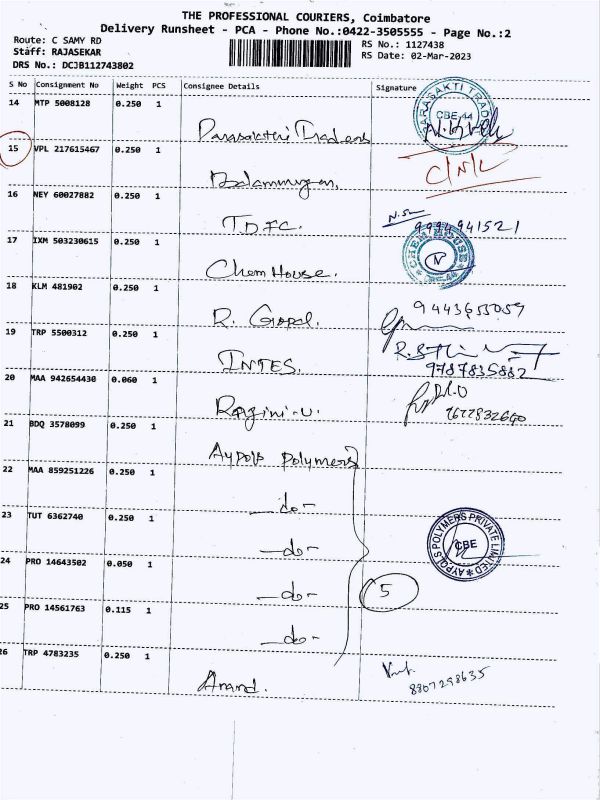 THE PROFESSIONAL COURIERS, Coimbatore
Delivery Runsheet - PCA - Phone No.:0422-3505555 - Page No.:2
Route: C SAMY RD
RS No.: 1127438
Staff: RAJASEKAR
RS Date: 02-Mar-2023
DRS No.: DCJB112743802
S No Consignment No Weight PCS Consignee Details Signature
14 MTP 5008128 0.250 1
Parasakthi Traders
PARASAKTI TRAD
CBE-44
15 VPL 217615467 0.250 1
Balamurugan.
C/N/L
16 NEY 60027882 0.250 1
T.D.F.C.
9994941521
17 IXM 503230615 0.250 1
Chem House.
CHEM HOUSE
18 KLM 481902 0.250 1
R. Gopal.
9443655059
19 TRP 5500312 0.250 1
INTES.
9787835882
20 MAA 942654430 0.060 1
Ragini.U.
7622832660
21 BDQ 3578099 0.250 1
Aypols Polymers
22 MAA 859251226 0.250 1
-do-
23 TUT 6362740 0.250 1
-do-
AYPOLS POLYMERS PRIVATE LIMITED
CBE
24 PRO 14643502 0.050 1
-do-
5
25 PRO 14561763 0.115 1
-do-
26 TRP 4783235 0.250 1
Anand.
8807298635